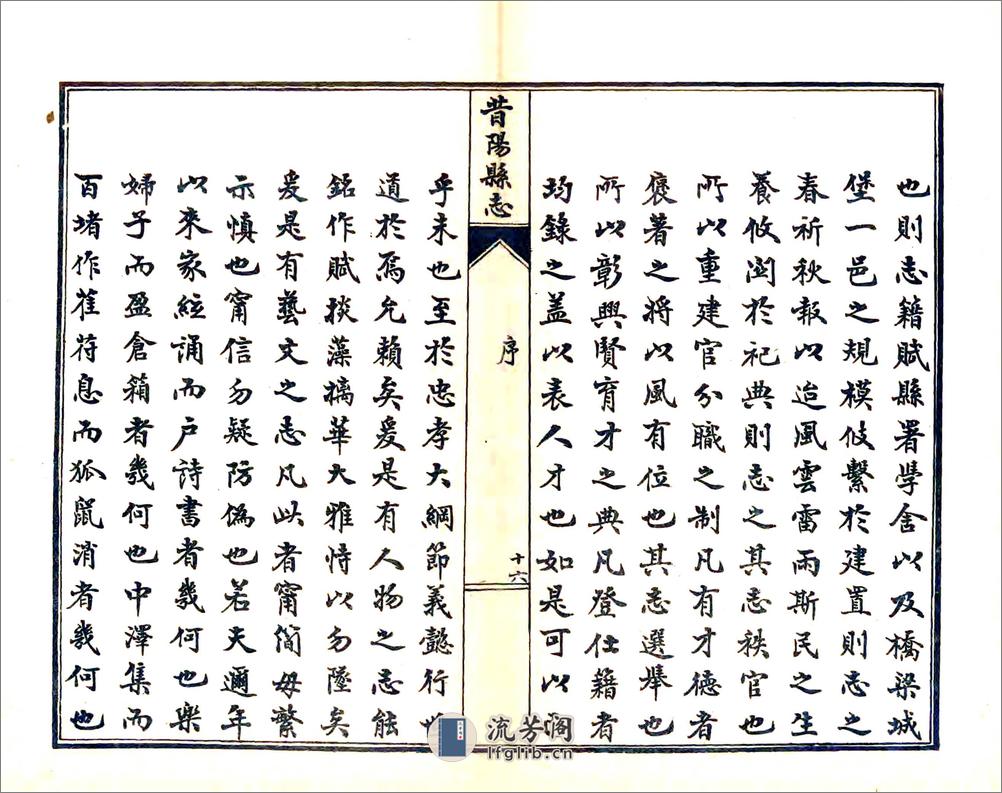 也則志籍賦縣署學舍以及橋梁城
堡一邑之規模攸繫於建置則志之
春祈秋報以迨風雲雷雨斯民之生
養攸關於祀典則志之其志秩官也
所以重建官分職之制凡有才德者
褒著之將以風有位也其志選舉也
所以彰興賢育才之典凡登仕籍者
均錄之蓋以表人才也如是可以
昔陽縣志
序
十六
乎未也至於忠孝大綱節義懿行
道於焉允賴矣爰是有人物之志能
銘作賦掞藻摛華大雅恃以勿墜矣
爰是有藝文之志凡此者甯簡毋繁
示慎也甯信勿疑防偽也若夫邇年
以來家絃誦而戶詩書者幾何也樂
婦子而盈倉箱者幾何也中澤集而
百堵作萑苻息而狐鼠消者幾何也
流芳阁
lfglib.cn